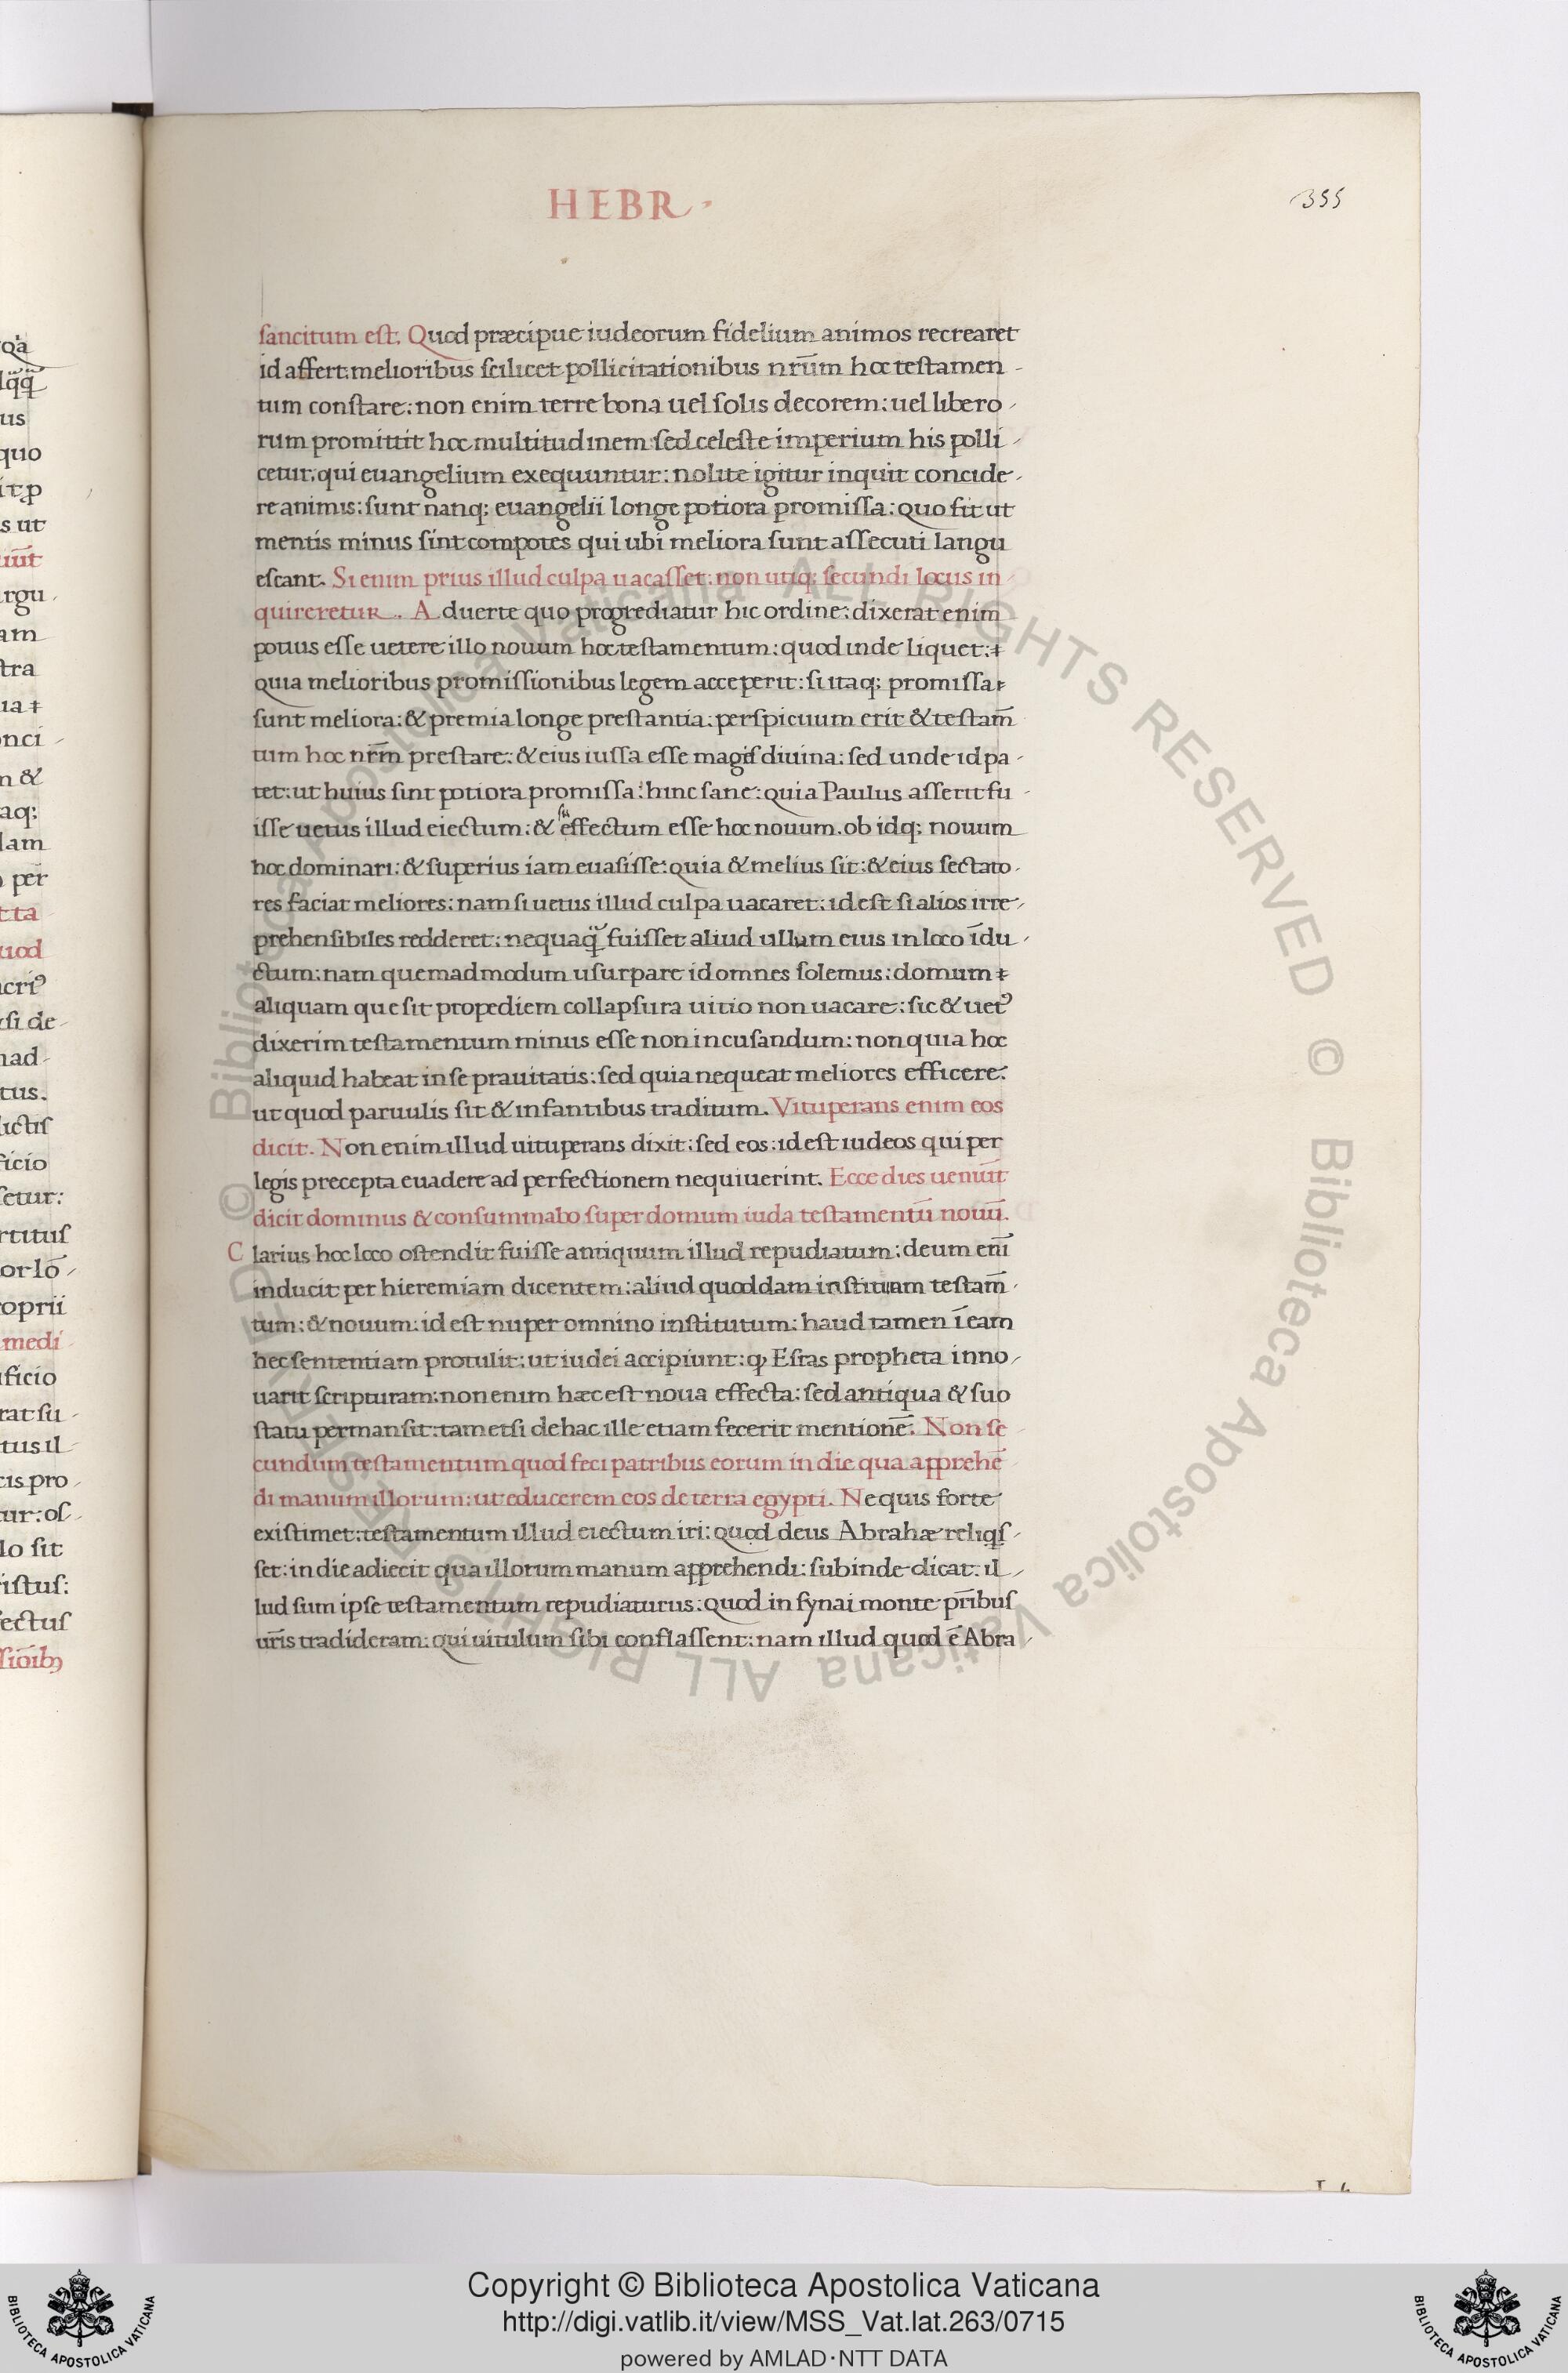 HEBR.
355
sancitum est. Quod præcipue iudeorum fidelium animos recrearet
id affert: melioribus scilicet pollicitationibus nr̄um hoc testamen-
tum constare: non enim terre bona uel solis decorem: uel libero-
rum promittit hoc multitudinem: sed celeste imperium his polli-
cetur: qui euangelium exequuntur: nolite igitur inquit concide-
re animis: sunt nanq; euangelii longe potiora promissa: quo fit ut
mentis minus sint compotes qui ubi meliora sunt assecuti langu
escant. Si enim prius illud culpa uacasset: non utiq; secundi locus in-
quireretur. Aduerte quo progrediatur hic ordine: dixerat enim
potius esse uetere illo nouum hoc testamentum: quod inde liquet:
quia melioribus promissionibus legem acceperit: si itaq; promissa
sunt meliora: & premia longe prestantia: perspicuum erit & testam̄
tum hoc nr̄m prestare: & eius iussa esse magis diuina: sed unde id pa-
tet: ut huius sint potiora promissa: hinc sane: quia Paulus asserit fu-
isse uetus illud eiectum: & suffectum esse hoc nouum. ob idq; nouum
hoc dominari: & superius iam euasisse: quia & melius sit: & eius sectato-
res faciat meliores: nam si uetus illud culpa uacaret: id est si alios irre-
prehensibiles redderet: nequaq̄ fuisset aliud ullum eius in loco īdu-
ctum: nam quemadmodum usurpare id omnes solemus: domum
aliquam que sit propediem collapsura uitio non uacare: sic & uet᾽
dixerim testamentum minus esse non incusandum: non quia hoc
aliquid habeat in se prauitatis: sed quia nequeat meliores efficere:
ut quod paruulis sit & infantibus traditum. Vituperans enim eos
dicit. Non enim illud uituperans dixit: sed eos: id est iudeos qui per
legis precepta euadere ad perfectionem nequiuerint. Ecce dies ueniūt
dicit dominus & consummabo super domum iuda testamentū nouū.
Clarius hoc loco ostendit fuisse antiquum illud repudiatum: deum enī
inducit per hieremiam dicentem: aliud quoddam institutum testam̄-
tum: & nouum: id est nuper omnino institutum: haud tamen ī eam
hec sententiam protulit: ut iudei accipiunt: ꝙ Esras propheta inno-
uarit scripturam: non enim hæc est noua effecta: sed antiqua & suo
statu permansit: tametsi de hac ille etiam fecerit mentionē. Non se-
cundum testamentum quod feci patribus eorum in die qua apprehē-
di manum illorum: ut educerem eos de terra egypti. Nequis forte
existimet: testamentum illud eiectum iri: quod deus Abrahæ reliqs-
set: in die adiecit qua illorum manum apprehendi: subinde dicat: il-
lud sum ipse testamentum repudiaturus: quod in synai monte pr̄ibus
ur̄is tradideram: qui uitulum sibi conflassent: nam illud quod ē Abra-
© Biblioteca Apostolica Vaticana ALL RIGHTS RESERVED
© Biblioteca Apostolica Vaticana ALL RIGHTS RESERVED
Copyright © Biblioteca Apostolica Vaticana
http://digi.vatlib.it/view/MSS_Vat.lat.263/0715
powered by AMLAD·NTT DATA
BIBLIOTECA APOSTOLICA VATICANA
BIBLIOTECA APOSTOLICA VATICANA